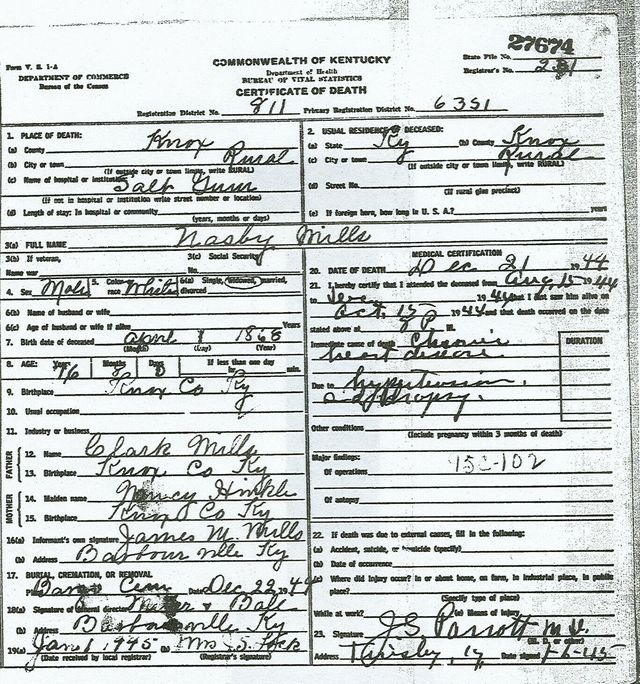 27674
Form V. S. 1-A
COMMONWEALTH OF KENTUCKY
State File No.
DEPARTMENT OF COMMERCE
Department of Health
Registrar's No. 231
Bureau of the Census
BUREAU OF VITAL STATISTICS
CERTIFICATE OF DEATH
Registration District No. 811 Primary Registration District No. 6351
1. PLACE OF DEATH:
(a) County Knox
(b) City or town Rural
(If outside city or town limits, write RURAL)
(c) Name of hospital or institution
Salt Gum
(If not in hospital or institution write street number or location)
(d) Length of stay: In hospital or community
(years, months or days)
2. USUAL RESIDENCE OF DECEASED:
(a) State Ky (b) County Knox
(c) City or town Rural
(If outside city or town limits, write RURAL)
(d) Street No.
(If rural give precinct)
(e) If foreign here, how long in U. S. A.? years
3(a) FULL NAME Nasby Mills
3(b) If veteran, 3(c) Social Security
Name war No.
4. Sex Male 5. Color or race White 6(a) Single, widowed, married, divorced
6(b) Name of husband or wife
6(c) Age of husband or wife if alive Years
7. Birth date of deceased April 1868
(Month) (Day) (Year)
8. AGE: Years Months Days If less than one day
76 8 hr. min.
9. Birthplace Knox Co Ky
10. Usual occupation
11. Industry or business
FATHER
12. Name Clark Mills
13. Birthplace Knox Co Ky
MOTHER
14. Maiden name Nancy Hinkle
15. Birthplace Knox Co Ky
16(a) Informant's own signature James M. Mills
(b) Address Barbourville Ky
17. BURIAL, CREMATION, OR REMOVAL
Cem Date Dec 22 1944
18(a) Signature of funeral director
(b) Address Barbourville Ky
19(a) Jan 1 1945 (b) Mrs
(Date received by local registrar) (Registrar's signature)
MEDICAL CERTIFICATION
20. DATE OF DEATH Dec 21 1944
21. I hereby certify that I attended the deceased from Aug 15 1944
to 1944 that I last saw him alive on
Oct 15 1944 and that death occurred on the date
stated above at 8 P M.
Immediate cause of death Chronic
heart disease
DURATION
Due to hypertension
and dropsy.
Other conditions
(Include pregnancy within 3 months of death)
Major findings:
Of operations 15C-102
Of autopsy
22. If death was due to external causes, fill in the following:
(a) Accident, suicide, or homicide (specify)
(b) Date of occurrence
(c) Where did injury occur? in or about home, on farm, in industrial place, in public
place?
(Specify type of place)
While at work? (e) Means of injury
23. Signature J.G. Parrott M.D.
(M. D. or other)
Address Date signed 1-6-45